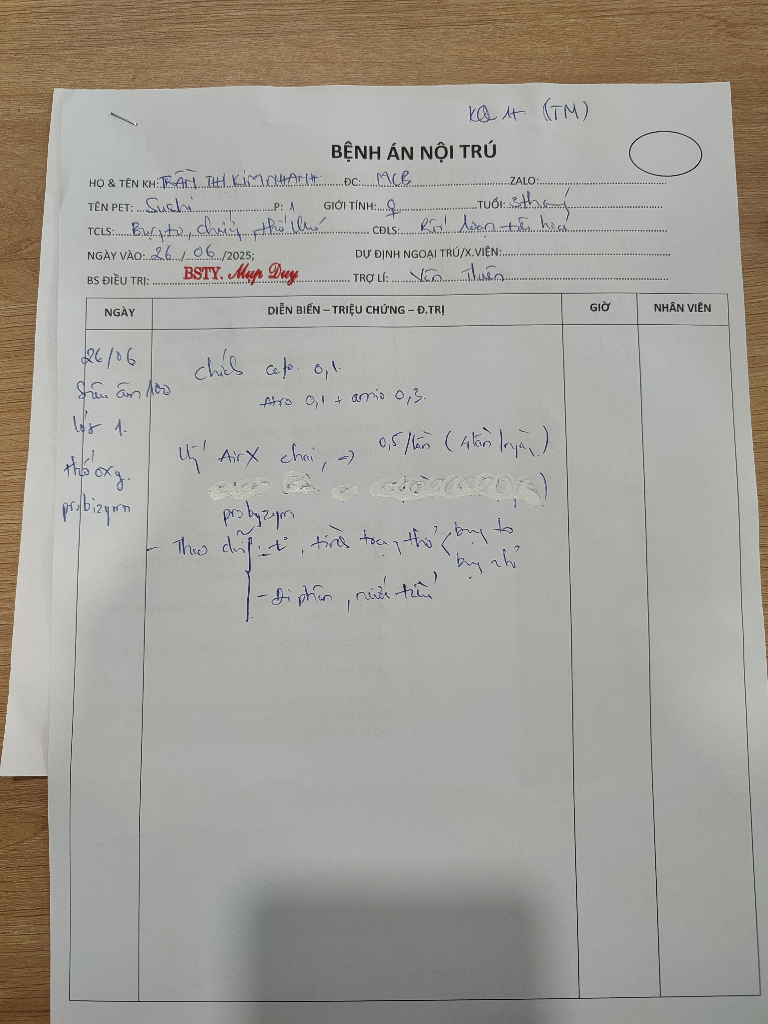 KQ 1t (TM)
BỆNH ÁN NỘI TRÚ
HỌ & TÊN KH: TRẦN THỊ KIM NHANH ĐC: MCB ZALO:
TÊN PET: Sushi P: 1 GIỚI TÍNH: ♀ TUỔI: 3 tháng
TCLS: Bụng to, thở khó CĐLS: Rối loạn tiêu hóa
NGÀY VÀO: 26 / 06 /2025; DỰ ĐỊNH NGOẠI TRÚ/X.VIỆN:
BS ĐIỀU TRỊ: BSTY. Mup Duy TRỢ LÍ: Văn Thuận
NGÀY DIỄN BIẾN – TRIỆU CHỨNG – Đ.TRỊ GIỜ NHÂN VIÊN
26/06 chích 0,1.
Siêu âm 100 Atro 0,1 + amio 0,3.
lần 1.
Uý AirX chai, => 0,5/lần (4 lần/ngày)
thở oxy.
probizym
probyzym
- Theo dõi: t°, tình trạng thở < bụng to
bụng nhỏ
- Đi phân, nước tiểu